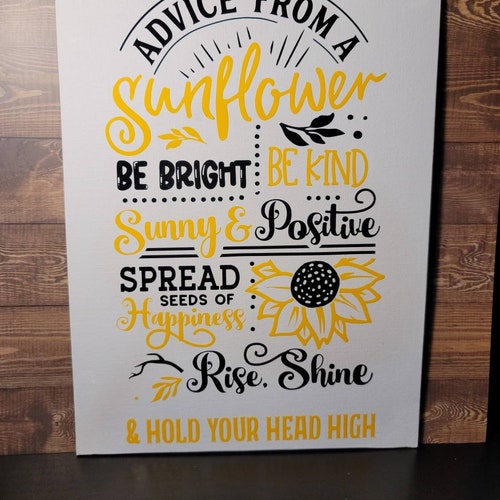 ADVICE FROM A
Sunflower
BE BRIGHT
BE KIND
Sunny & Positive
SPREAD
SEEDS OF
Happiness
Rise, Shine
& HOLD YOUR HEAD HIGH